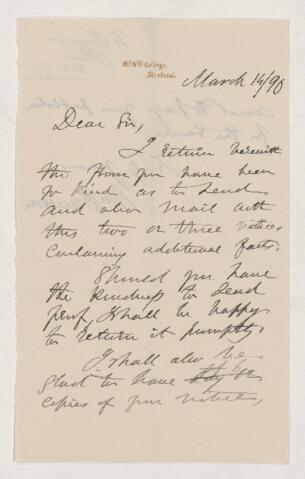 McGill College,
Montreal.
March 14/90
Dear Sir,
I return herewith
the from you have been
so kind as to send
and also mail with
this two or three notices
containing additional facts.
Should you have
the kindness to send
proof, I shall be happy
to return it promptly.
I shall also be
glad to have
copies of your notices,